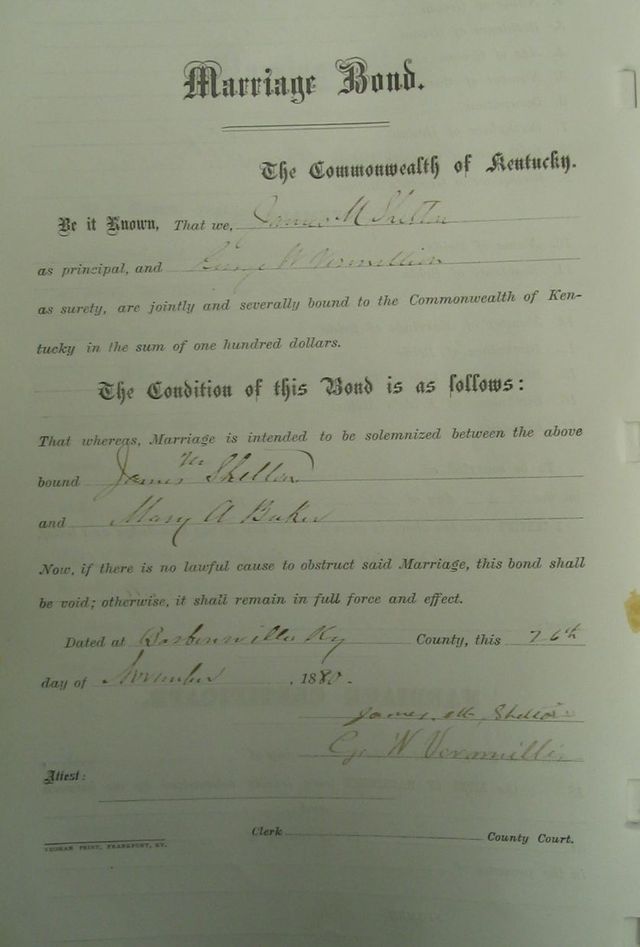 Marriage Bond.
The Commonwealth of Kentucky.
Be it Known, That we, James M Shelton
as principal, and George W Vermillion
as surety, are jointly and severally bound to the Commonwealth of Ken-
tucky in the sum of one hundred dollars.
The Condition of this Bond is as follows:
That whereas, Marriage is intended to be solemnized between the above
bound James M Shelton
and Mary A Baker
Now, if there is no lawful cause to obstruct said Marriage, this bond shall
be void; otherwise, it shall remain in full force and effect.
Dated at Barbourville Ky County, this 26th
day of November , 1880.
James M, Shelton
G W Vermillion
Attest:
Clerk County Court.
YEOMAN PRINT, FRANKFORT, KY.